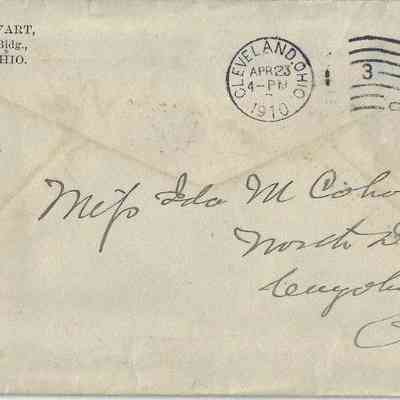 VART,
Bldg.,
HIO.
CLEVELAND, OHIO
APR 23
4-PM
1910
3
C
Miss Ida M Coho
North D
Cuyaho
O